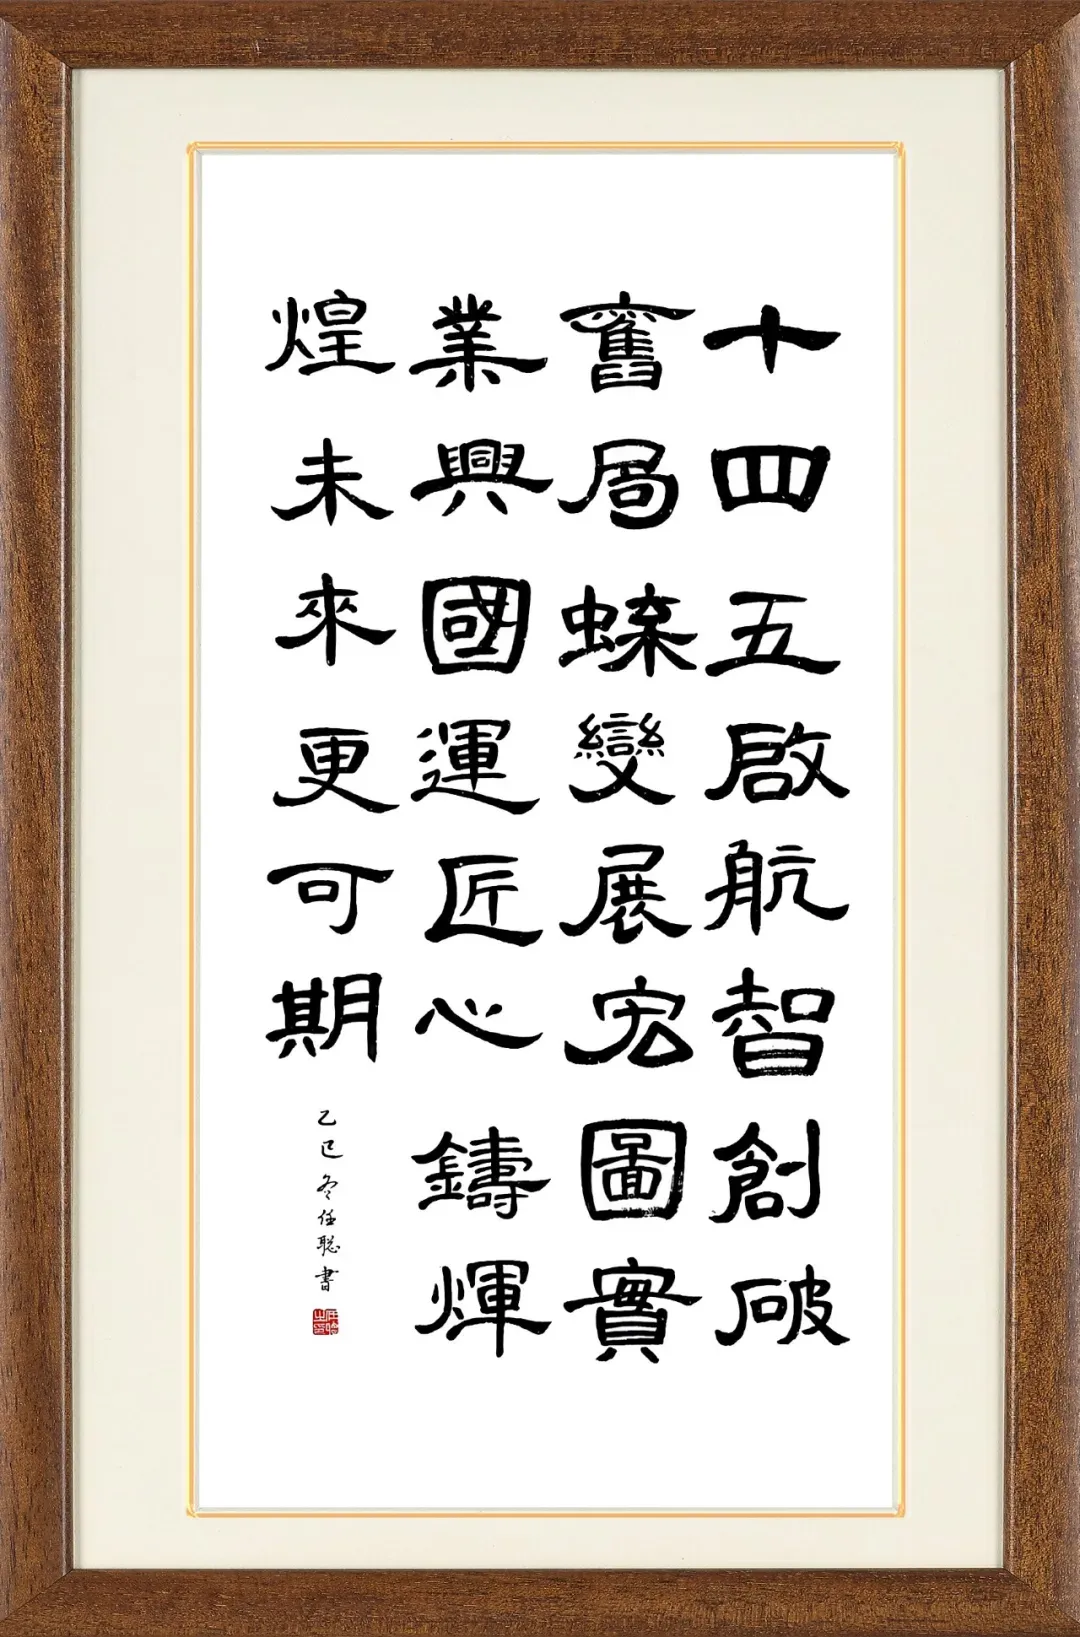 十四五啟航智創破
舊局蝶變展宏圖實
業興國運匠心鑄煇
煌未來更可期
乙巳冬任聡書